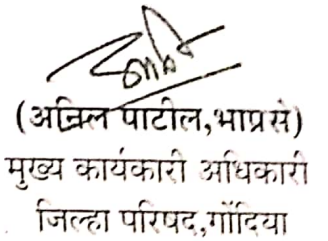 (अनिल पाटील,भाप्रसे)
मुख्य कार्यकारी अधिकारी
जिल्हा परिषद,गोंदिया